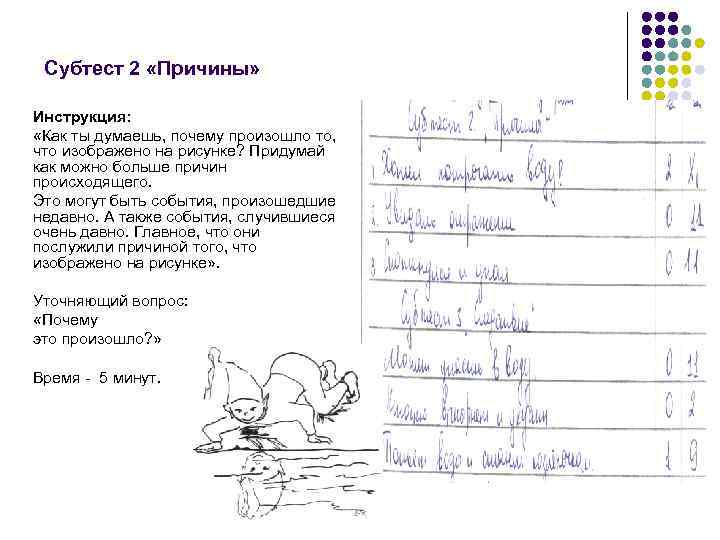 Субтест 2 «Причины»
Инструкция:
«Как ты думаешь, почему произошло то,
что изображено на рисунке? Придумай
как можно больше причин
происходящего.
Это могут быть события, произошедшие
недавно. А также события, случившиеся
очень давно. Главное, что они
послужили причиной того, что
изображено на рисунке» .
Уточняющий вопрос:
«Почему
это произошло? »
Время - 5 минут.
Субтест 2 "Причины"
1. воду? 2
2. Увидать отражение 0 11
3. и упал 0 11
Субтест 3
Может в воду 0 11
и 0 2
воды и 1 9